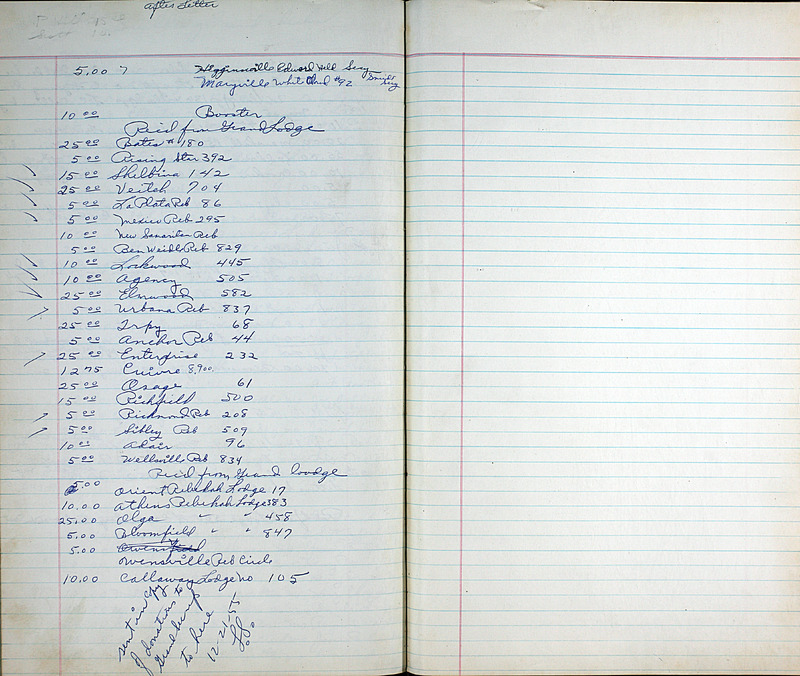 after letter
5.00 7 Higginsville Edward Hell Secy
Maryville White Cloud #92 Smith Secy
10 00 Booster
Recd from Grand Lodge
25 00 Bates # 180
5 00 Rising Star 392
15 00 Shelbina 142
25 00 Veitch 704
5 00 La Plata Reb 86
5 00 Mexico Reb 295
10 00 New Samaritan Reb
5 00 Ben Weidle Reb 829
10 00 Lockwood 445
10 00 Agency 505
25 00 Elmwood 582
5 00 Urbana Reb 837
25 00 68
5 00 Anchor Reb 44
25 00 Enterprise 232
12 75 Cuivre 8,900.
25 00 Osage 61
15 00 Richfield 500
5 00 Richmond Reb 208
5 00 Sibley Reb 509
10 00 Adair 96
5 00 Wellsville Reb 834
Recd from Grand Lodge
5.00 Orient Rebekah Lodge 17
10.00 Athens Rebekah Lodge 383
25.00 Olga " " 458
5.00 Bloomfield " " 847
5.00 Owensfield
Owensville Reb Circle
10.00 Callaway Lodge no 105
sent in copy
of donations to
Grand
to here
12-21-55